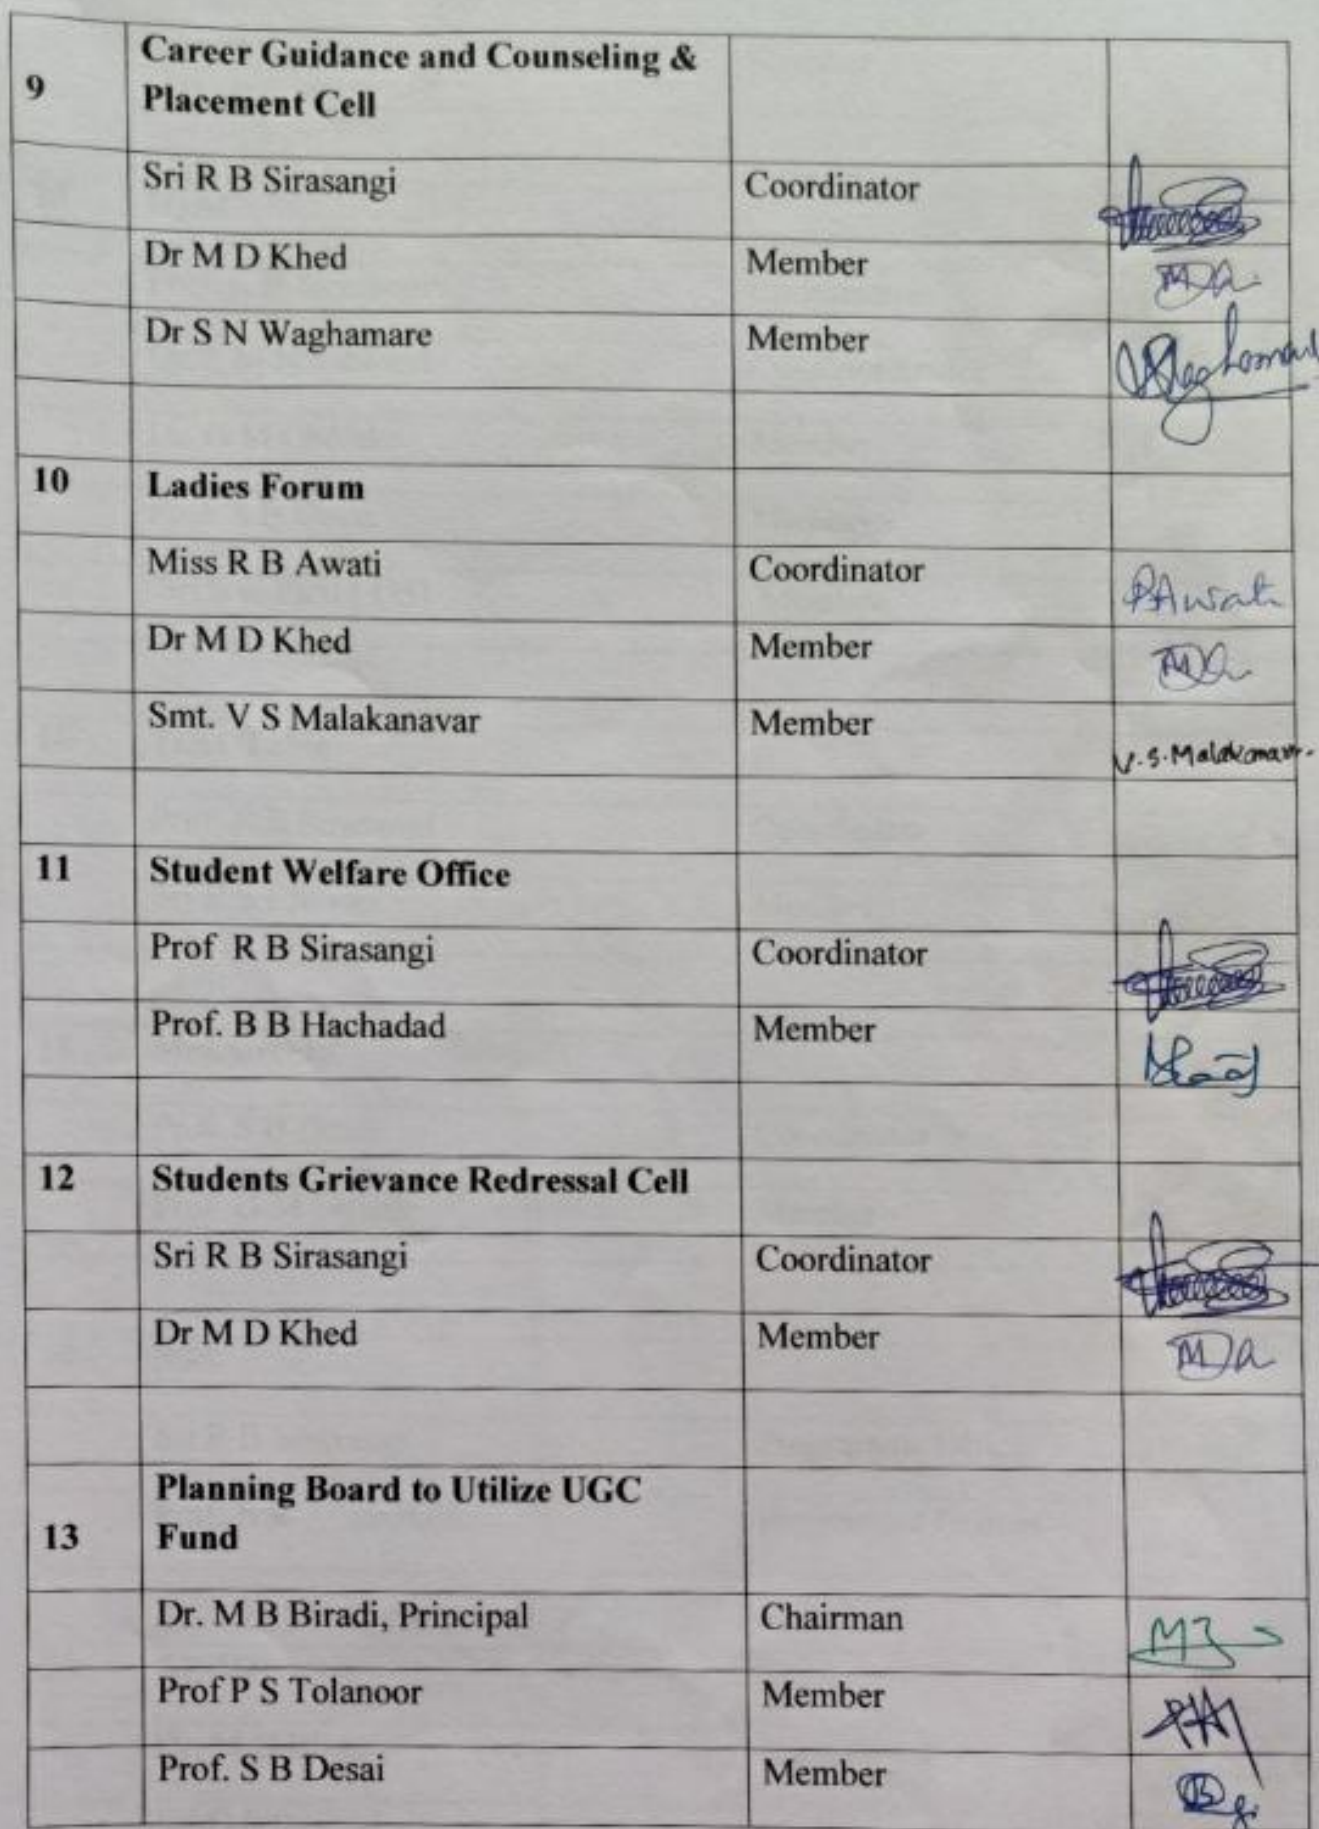 Career Guidance and Counseling &
9 Placement Cell
Sri R B Sirasangi Coordinator
Dr M D Khed Member
Dr S N Waghamare Member
10 Ladies Forum
Miss R B Awati Coordinator
Dr M D Khed Member
Smt. V S Malakanavar Member
V.S.Malakanavar.
11 Student Welfare Office
Prof R B Sirasangi Coordinator
Prof. B B Hachadad Member
12 Students Grievance Redressal Cell
Sri R B Sirasangi Coordinator
Dr M D Khed Member
Planning Board to Utilize UGC
13 Fund
Dr. M B Biradi, Principal Chairman
Prof P S Tolanoor Member
Prof. S B Desai Member